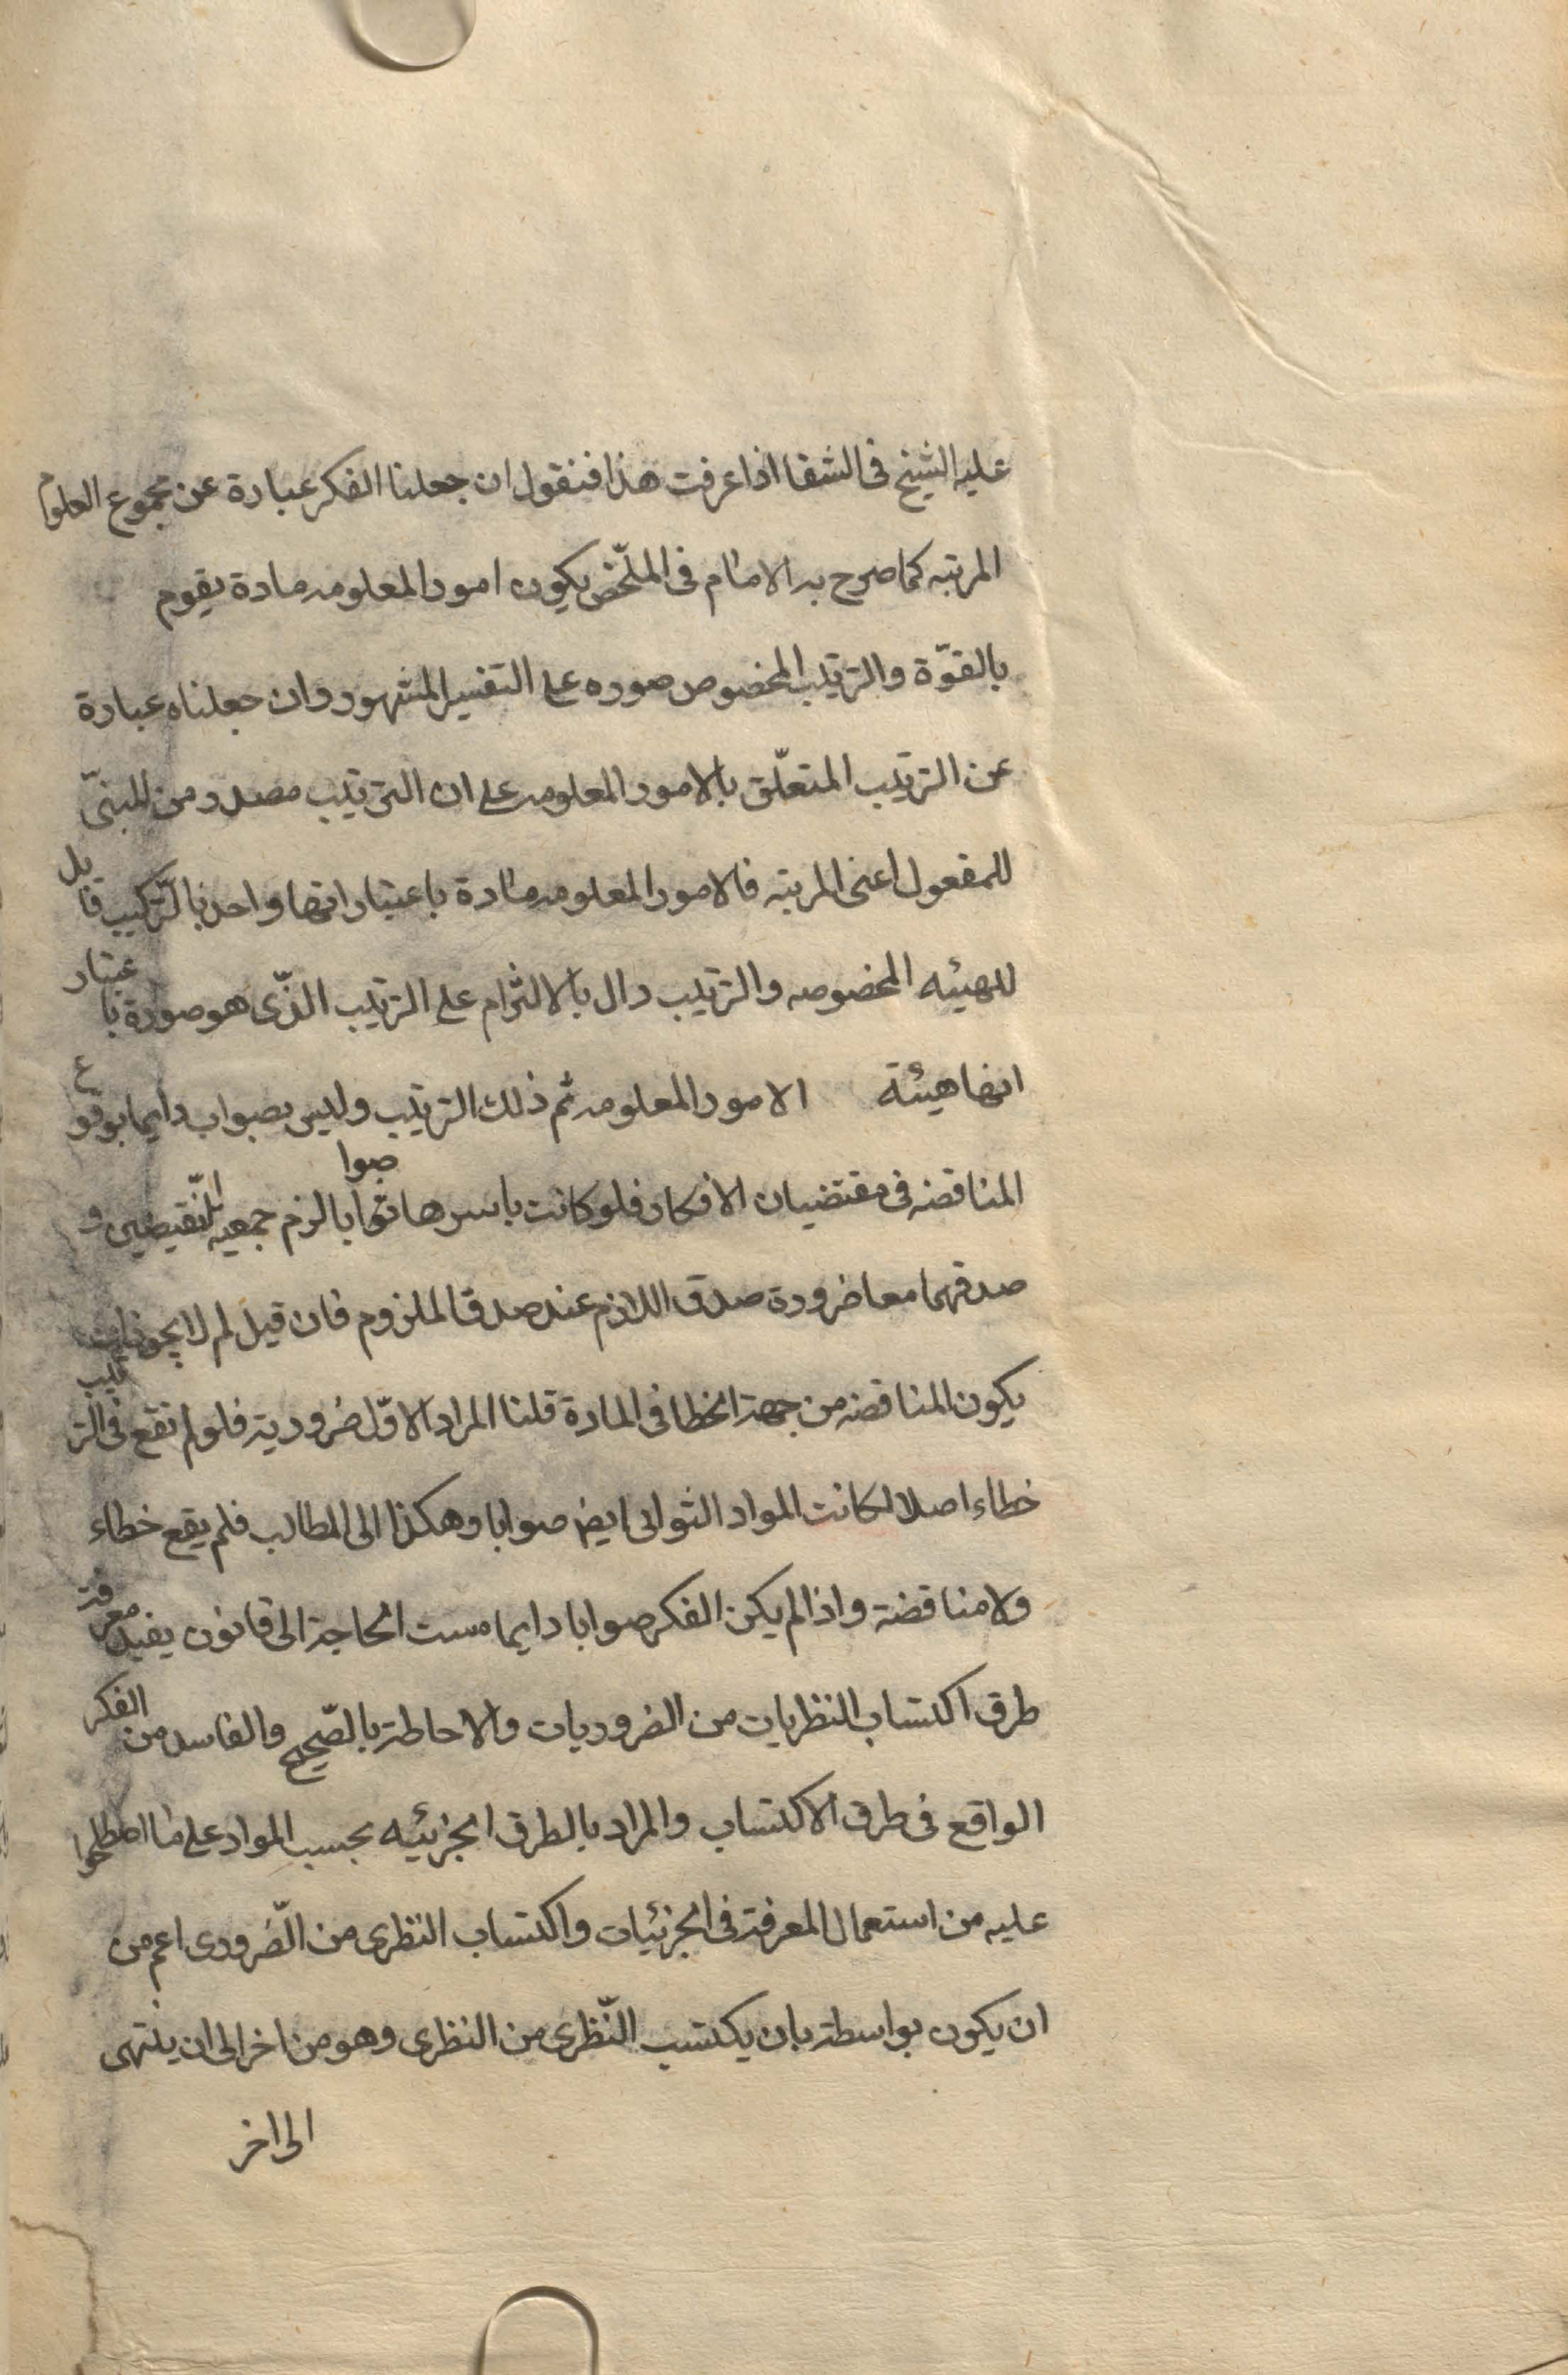 عليه الشيخ فى الشفا اذا عرفت هذا فنقول ان جعلنا الفكر عبارة عن مجموع العلوم
المرتبه كما صرح به الامام فى الملخّص يكون امور المعلومه مادة يقوم
بالقوّة والترتيب المخصوص صوره على التفسير المشهور وان جعلناه عبارة
عن الترتيب المتعلّق بالامور المعلومه على ان الترتيب مصدر من المبنىّ
للمفعول اعنى المرتبه فالامور المعلومه مادة باعتبار انها واحد بالتركيب قابل
للهيئه المخصوصه والترتيب دال بالالتزام على الترتيب الذّى هو صورة باعتبار
انها هيئة الامور المعلومه ثم ذلك الترتيب وليس بصواب دايما بوقوع
المناقضه فى مقتضيان الافكار فلو كانت باسرها صوابا لزم جمعيه النّقيضين و
صدقهما معا ضرورة صدق اللازم عند صدق الملزوم فان قيل لم لا يجوز ان
يكون المناقضه من جهة الخطا فى المادة قلنا المراد الاوّل ضرورية فلو لم تقع فى الترتيب
خطاء اصلا لكانت المواد الثوانى ايض صوابا وهكذا الى المطالب فلم يقع خطاء
ولا مناقضة واذا لم يكن الفكر صوابا دايما مست الحاجة الى قانون يفيد معرفة
طرق اكتساب النظريات من الضروريات والاحاطة بالصّحيح والفاسد من الفكر
الواقع فى طرق الاكتساب والمراد بالطرق الجزئيه بحسب المواد على ما اصطلحوا
عليه من استعمال المعرفة فى الجزئيات واكتساب النظرى من الضّرورى اعم من
ان يكون بواسطة بان يكتسب النّظرى من النظرى وهو من اخر الى ان ينتهى
الى اخر